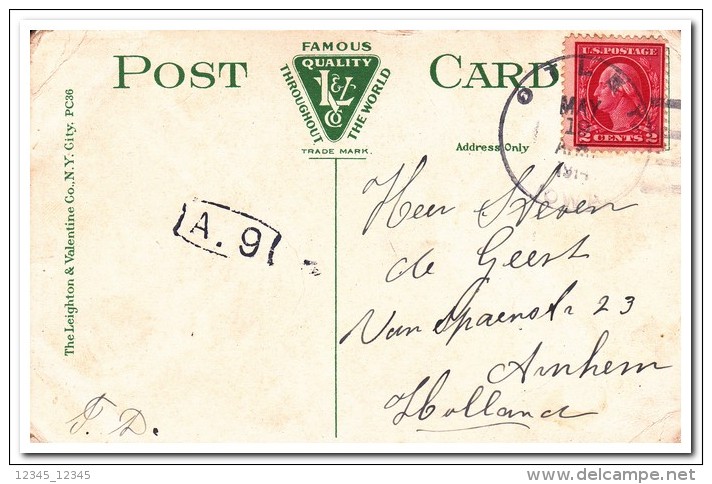 POST CARD
FAMOUS
QUALITY
THROUGHOUT
THE WORLD
L & V
CO
TRADE MARK.
Address Only
U.S. POSTAGE
2 CENTS 2
MAY
The Leighton & Valentine Co., N.Y. City. PC36
A. 9
Heer Steven
de Geest
Van Spaenstr 23
Arnhem
Holland
F. D.
12345_12345
www.delcampe.net